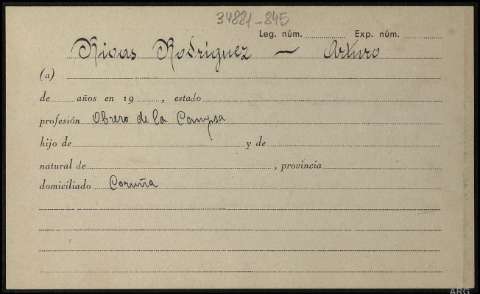 34881-845
Leg. núm. Exp. núm.
Rivas Rodríguez — Arturo
(a)
de años en 19 , estado
profesión Obrero de la Campsa
hijo de y de
natural de , provincia
domiciliado Coruña
ARG